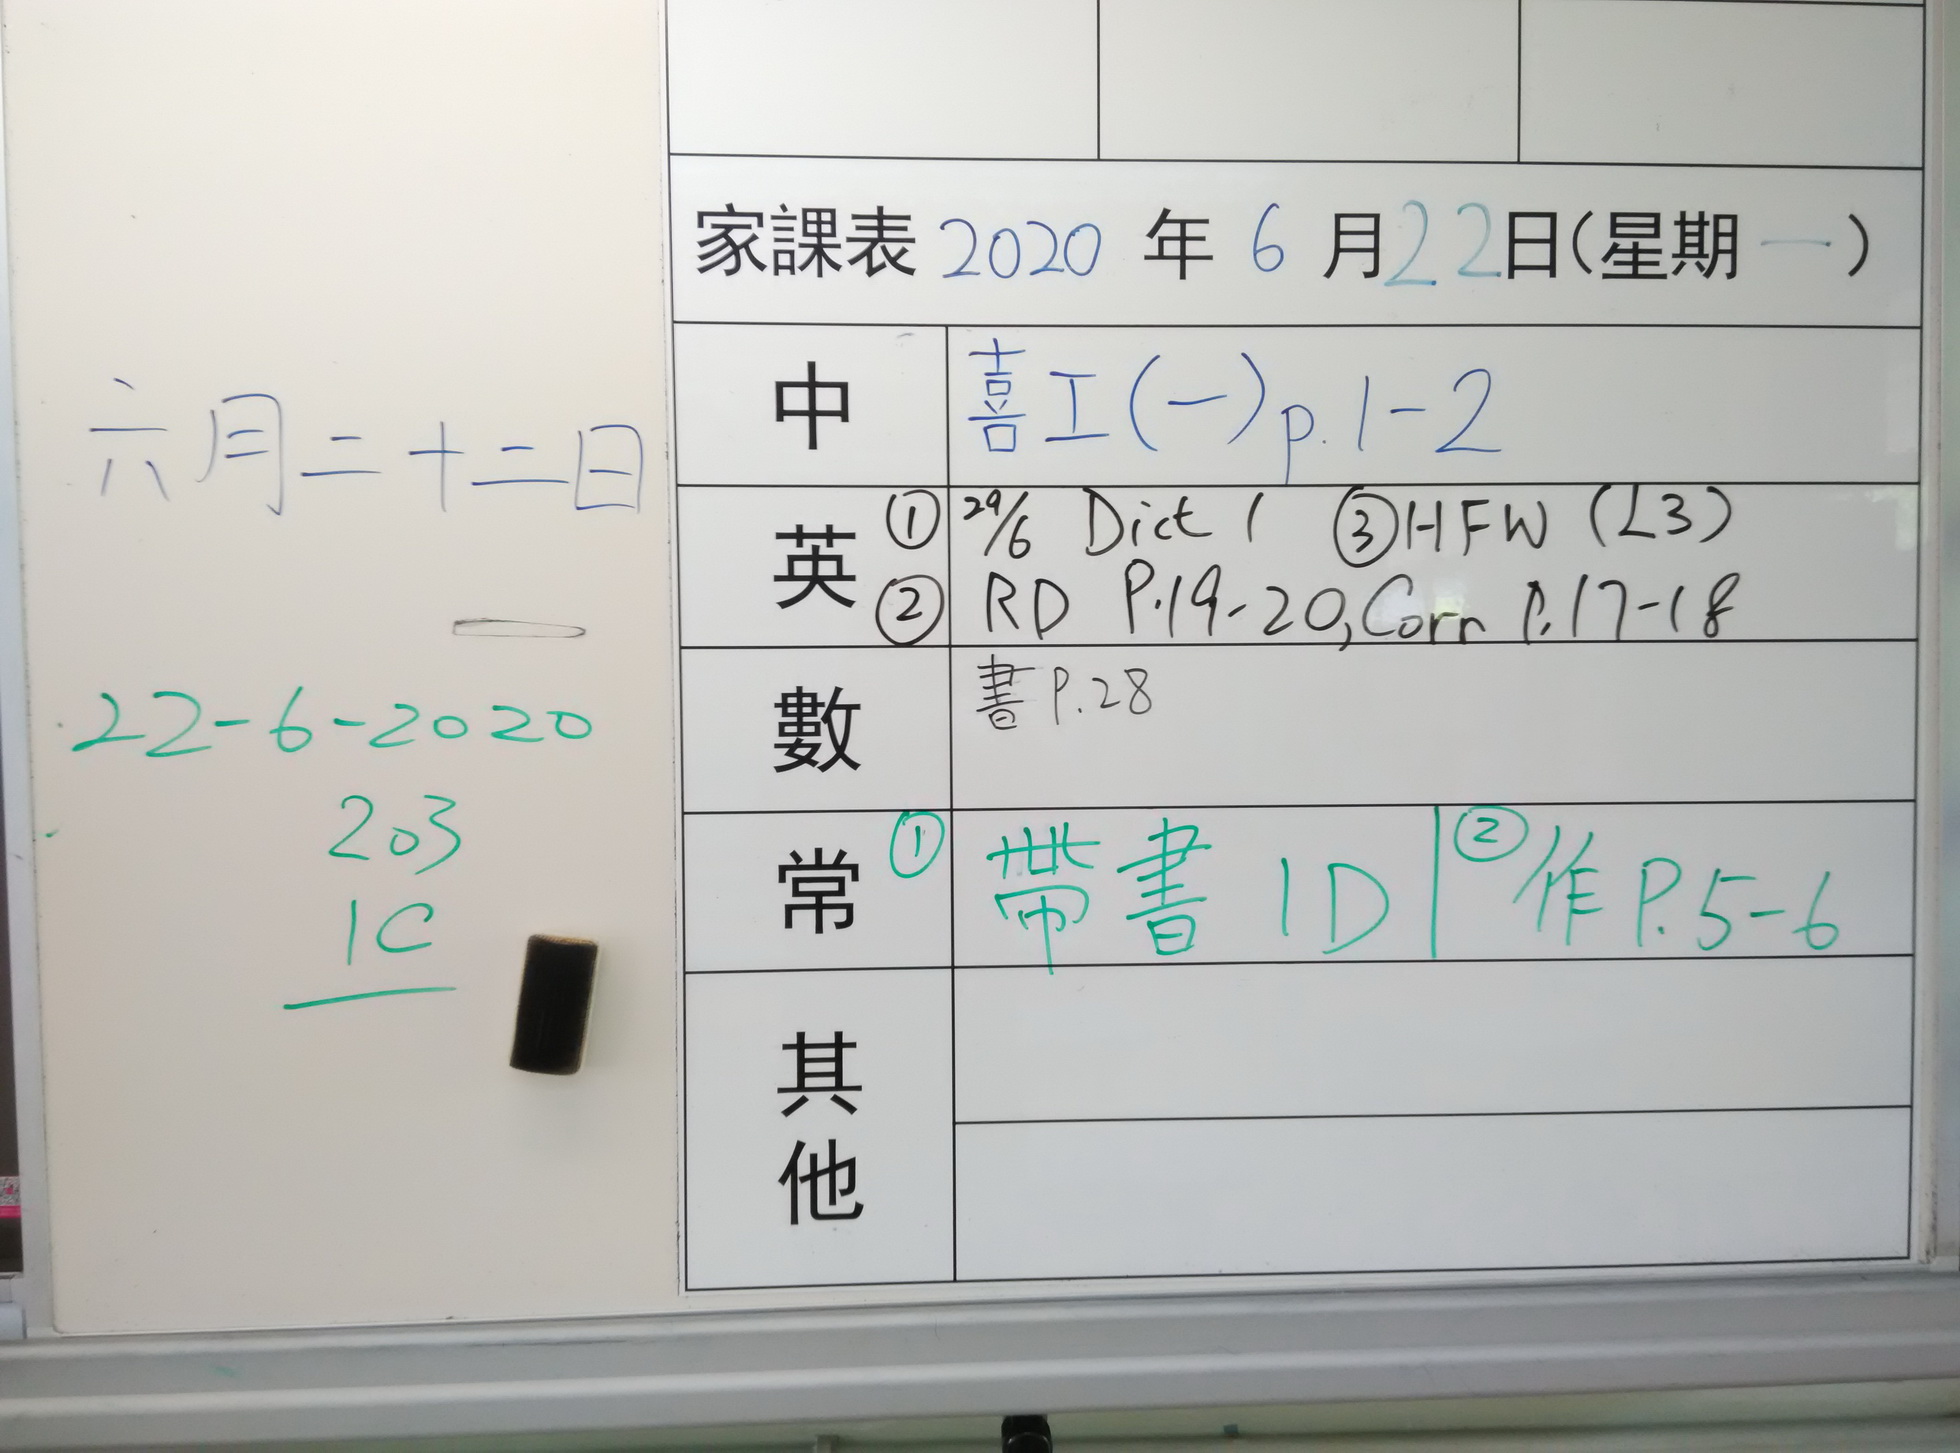 家課表 2020 年 6 月 22 日(星期一)
中 喜工(一)p.1-2
英 ① 29/6 Dict 1 ③HFW (L3)
② RD P.19-20, Corr P.17-18
數 書 P.28
常 ① 帶書 1D | ② 作 P.5-6
其他
六月二十二日
22-6-2020
203
1C